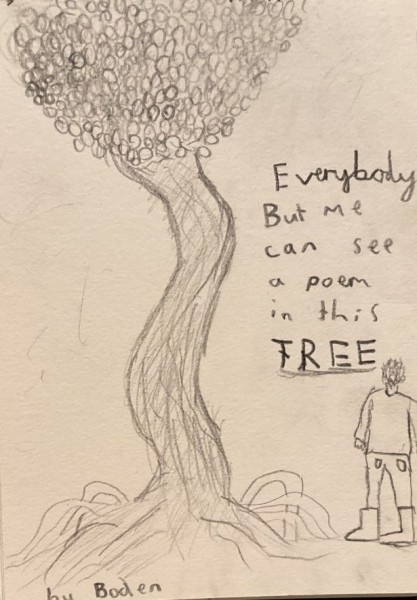 Everybody
But me
can see
a poem
in this
TREE
by Boden